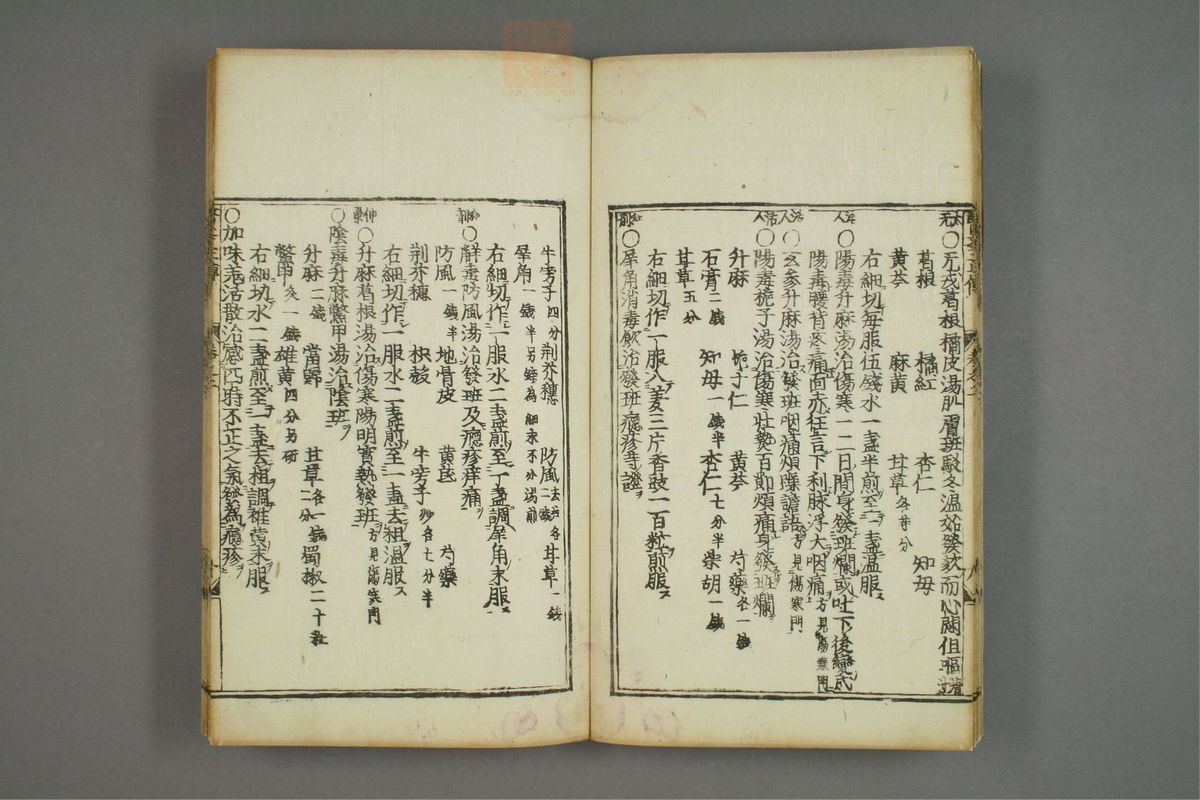 ○元戊葛根橘皮湯肌膚斑駁冬温始發欬而心悶但嘔清汁
葛根 橘紅 杏仁 知母
黄芩 麻黄 甘草各半分
右細切毎服伍戔水一盞半煎至一盞温服
活人○陽毒升麻湯治傷寒一二日間身發班爛或吐下後變成
陽毒腰背疼痛面赤狂言下利脉浮大咽痛方見傷寒門
活人○玄参升麻湯治發班咽痛煩躁譫語方見傷寒門
活人○陽毒梔子湯治傷寒壯熱百節煩痛身發班爛
升麻 梔子仁 黄芩 芍藥各一戔
石膏二戔 知母一戔半 杏仁七分半 柴胡一戔
甘草五分
右細切作一服入姜三片香豉一百粒煎服
○犀角消毒飲治發班癮疹等證
牛旁子四分 荆芥穗 防風各二戔 甘草一戔
犀角一戔半另鎊為細末不分湯煎
右細切作一服水二盞煎至一盞調犀角末服
○解毒防風湯治發班及癮疹痒痛
防風一戔半 地骨皮 黄芪 芍藥
荆芥穗 枳殼 牛旁子炒各七分半
右細切作一服水二盞煎至一盞去粗温服
仲景○升麻葛根湯治傷寒陽明實熱發班方見傷寒門
○陰毒升麻鱉甲湯治陰班
升麻二戔 當歸 甘草各一戔二分 蜀椒二十粒
鱉甲炙一戔 雄黄四分另研
右細切水二盞煎至一盞去粗調雄黄末服
○加味羗活散治感四時不正之氣發為癮疹